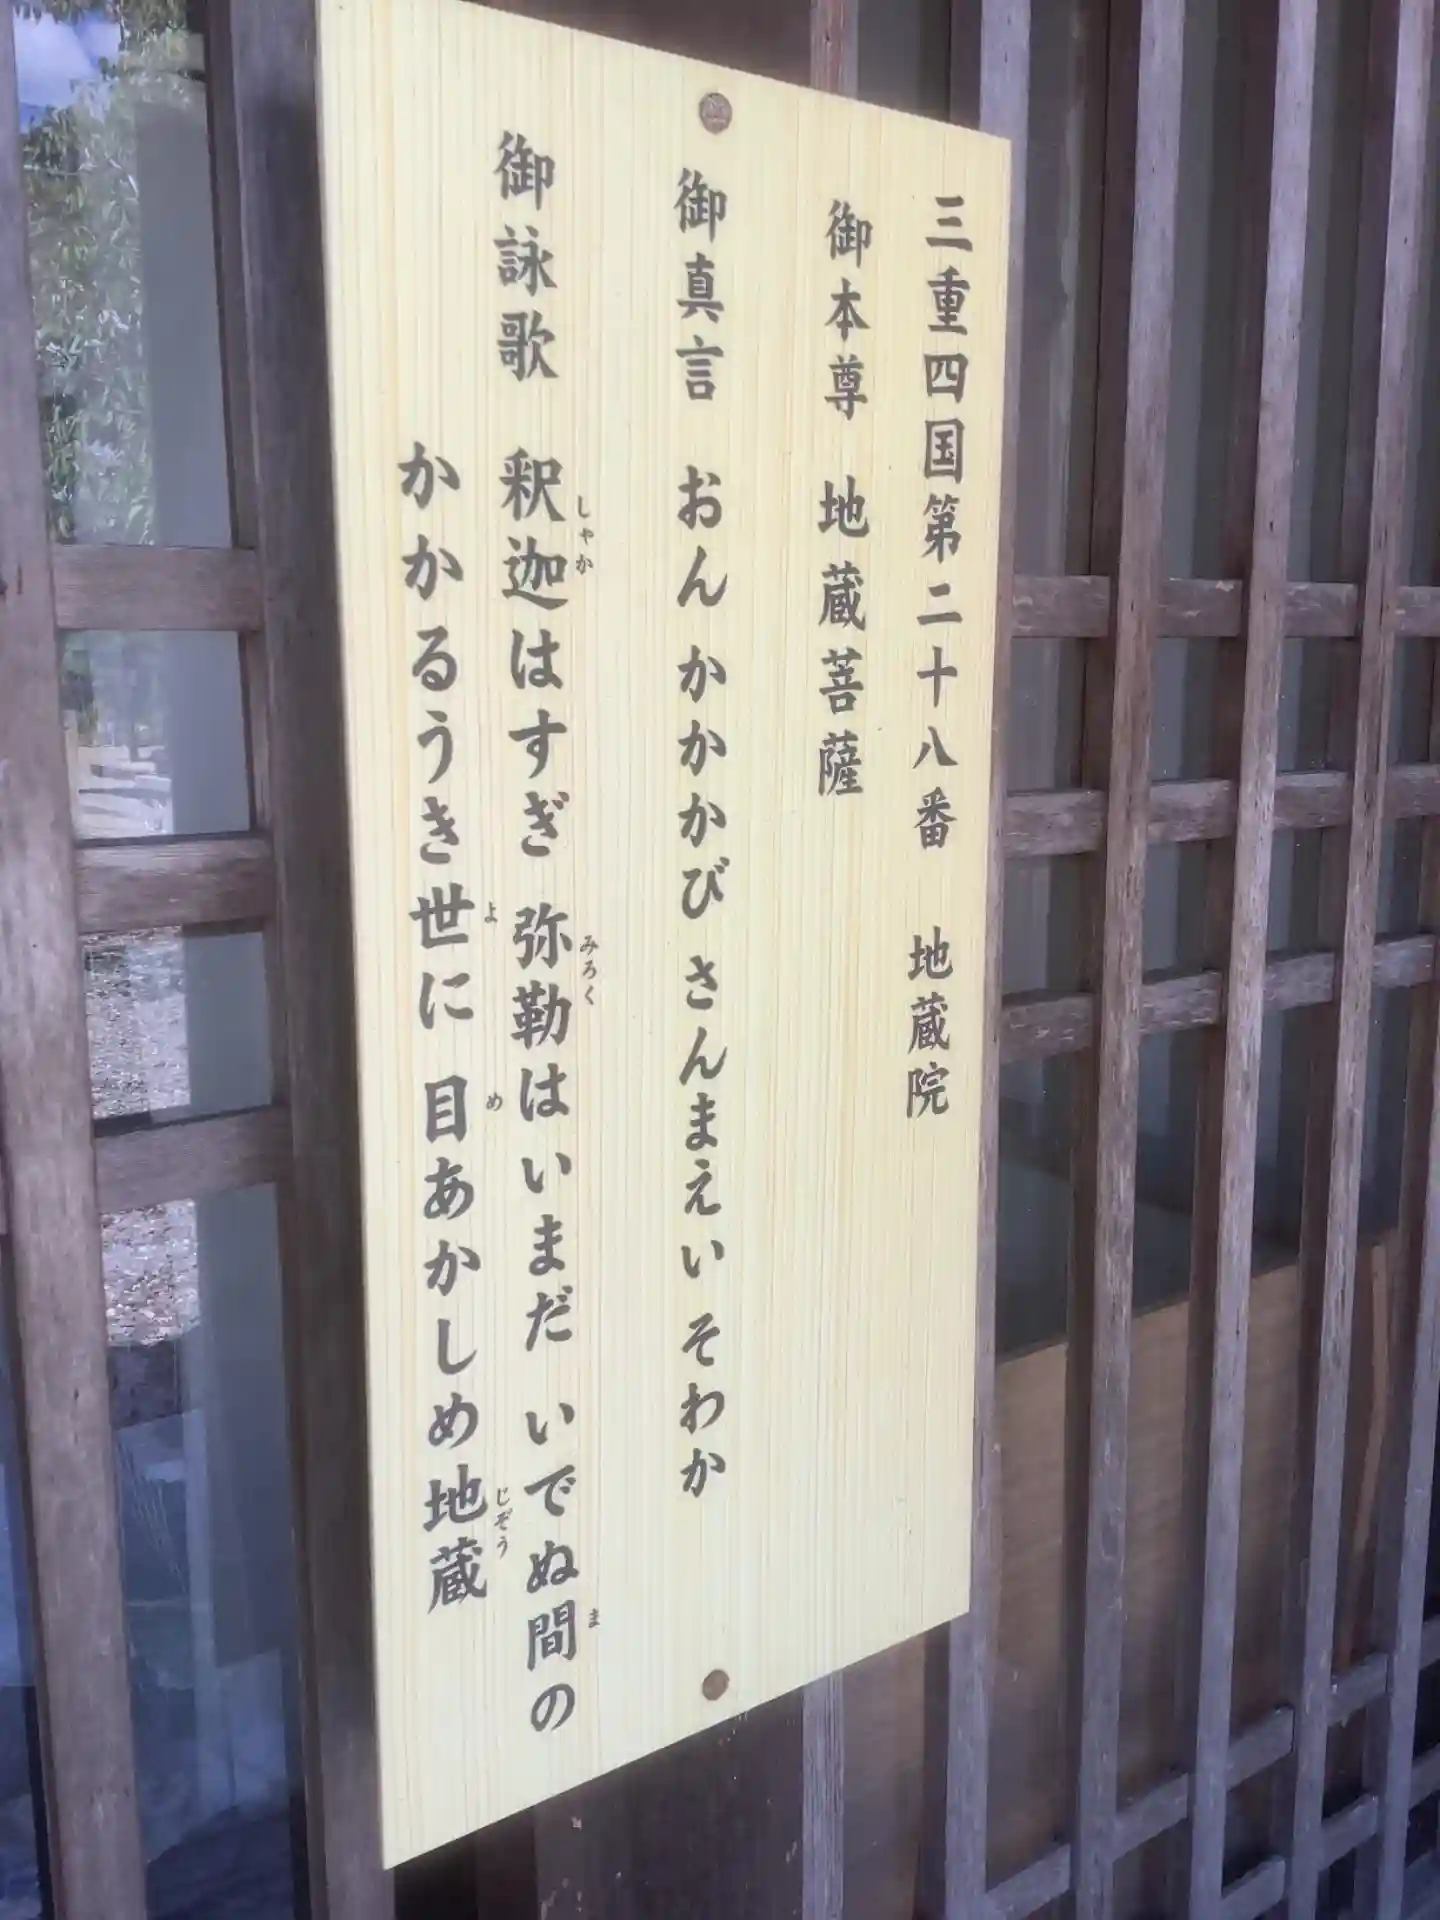 三重四国第二十八番 地蔵院
御本尊 地蔵菩薩
御真言 おん かかかび さんまえい そわか
御詠歌 釈迦はすぎ 弥勒はいまだ いでぬ間の
しゃか みろく ま
かかるうき世に 目あかしめ地蔵
よ め じぞう